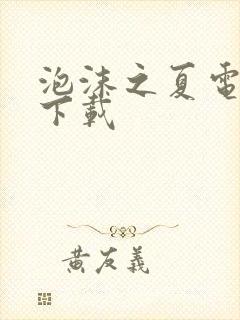 泡沫之夏電
下載
黃友義